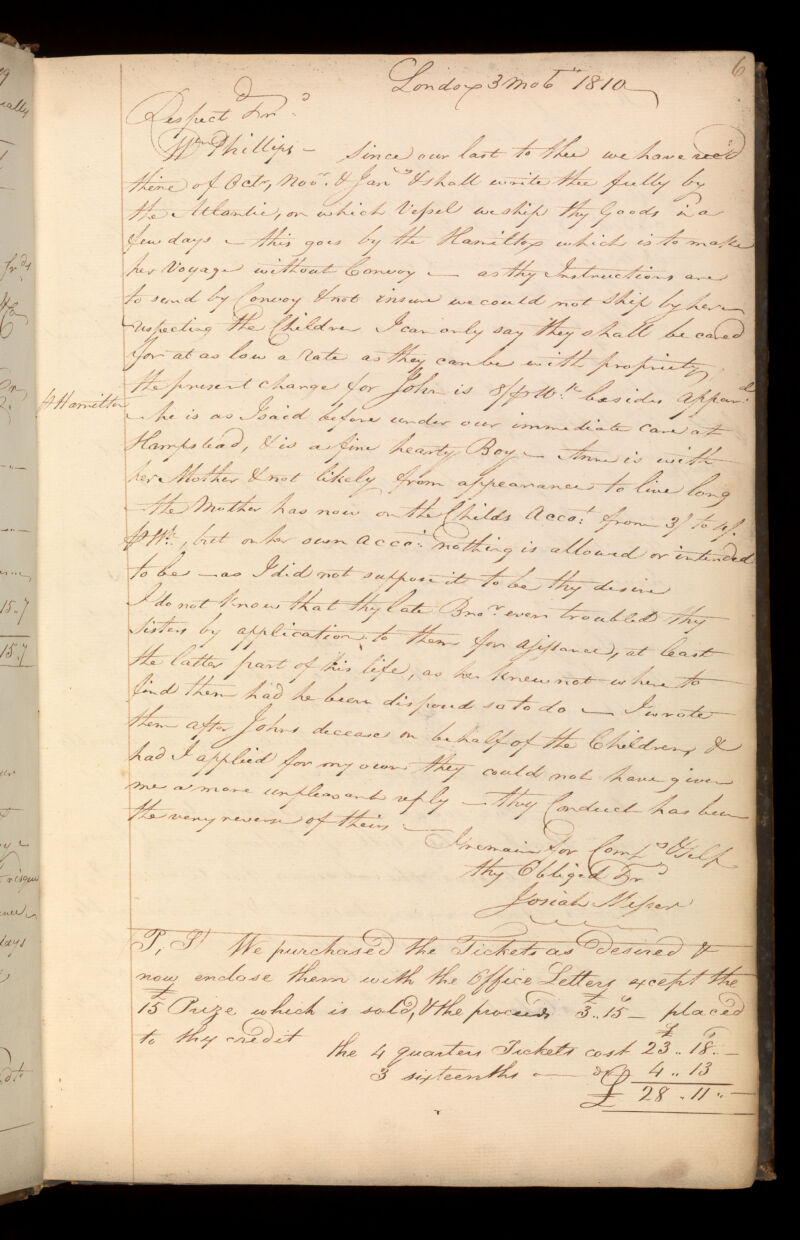 6
London 3 mo 6th 1810
Respectd Frd
Wm Phillips – Since our last to thee we have recd
thine of Octr, Novr. & Jany & shall write thee fully by
the Atlantic, on which Vessel we ship thy Goods in a
few days – this goes by the Hamilton which is to make
her Voyage without Convoy – as thy Instructions are
to send by Convoy & not insure we could not ship by her –
respecting the Children I can only say they shall be cared
for at as low a rate as they can be with propriety,
the present charge for John is 8/ ⅌ Wk besides apparel
⅌ Hamilton
– he is as I said before under our immediate care at
Hampstead, & is a fine hearty Boy – Anne is with
her Mother & not likely from appearance to live long
– the Mother has now on the Childs Accot. from 3/ to 4/.
⅌ Wk., but on her own accot. nothing is allowed or intended
to be – as I did not suppose it to be thy desire
I do not know that thy late Bror. even troubled thy
Sisters by application to them for assistance, at least
the latter part of his life, as he knew not where to
find them had he been disposed so to do – I wrote
them after Johns decease on behalf of the Children, &
had I applied for my own they could not have given
me a more unpleasant reply – thy Conduct has been
the very reverse of theirs –
I remain for Compy & Self
thy Obliged Frd
Josiah Messer
P, S We purchased the Tickets as desired &
now enclose them with the Office Letters except the
£15 Prize which is sold, & the proceeds £3..15 – placed
to thy credit
the 4 quarters Tickets cost £23..18..–
3 sixteenths – do 4..13
£ 28..11..–
15.7
15.7